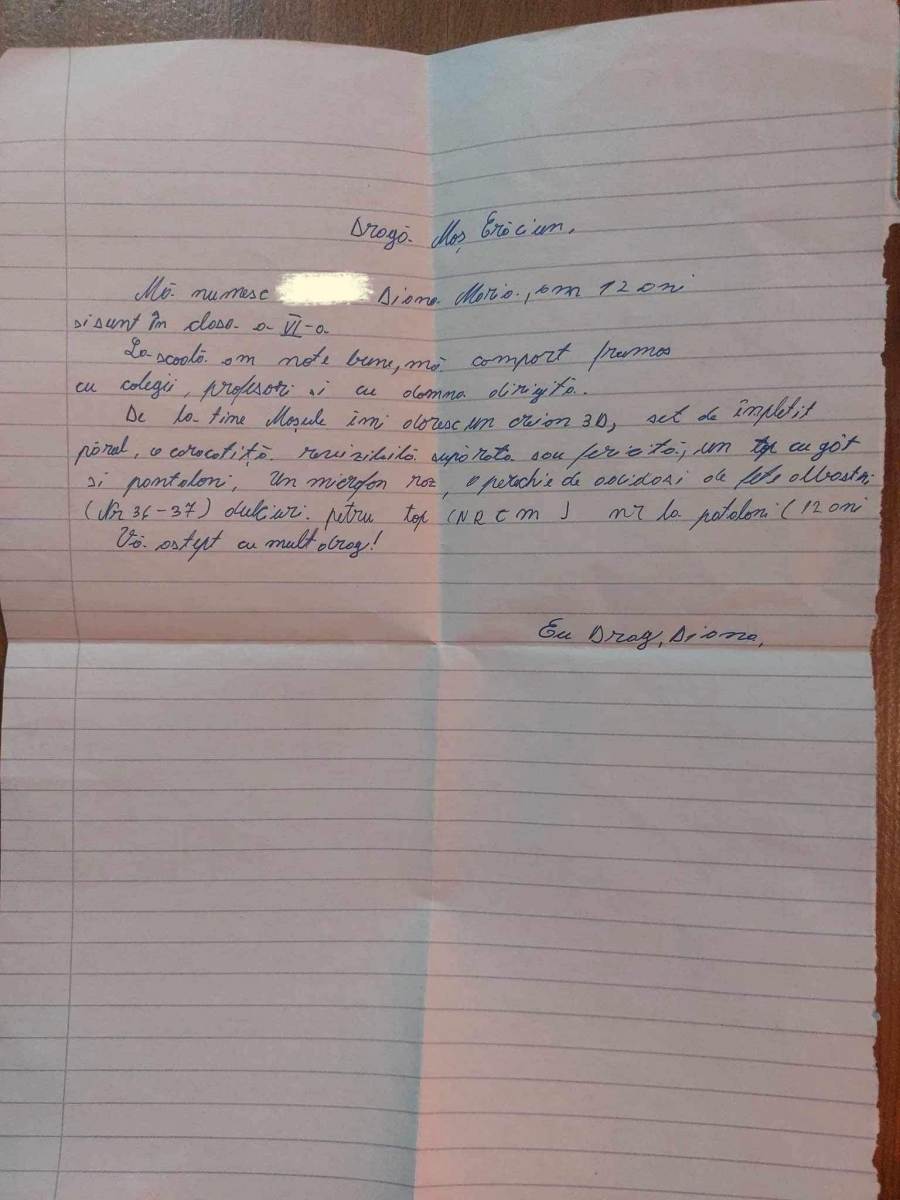 Dragă Moș Crăciun,
Mă numesc Diana Maria, am 12 ani
si sunt în clasa a VI-a
La scoală am note bune, mă comport frumos
cu colegii, profesori si cu domna dirigită.
De la tine Moșule îmi doresc un creion 3D, set de împletit
părul, o caracatiță revizibilă supărata sau fericită, un top cu gât
si pantaloni, un microfon roz, o perechie de adidasi de fete albastri
(Nr 36-37) dulciuri. petru top (NR C m) nr la pataloni (12 ani
Vă astept cu mult drag!
Cu Drag, Diana,